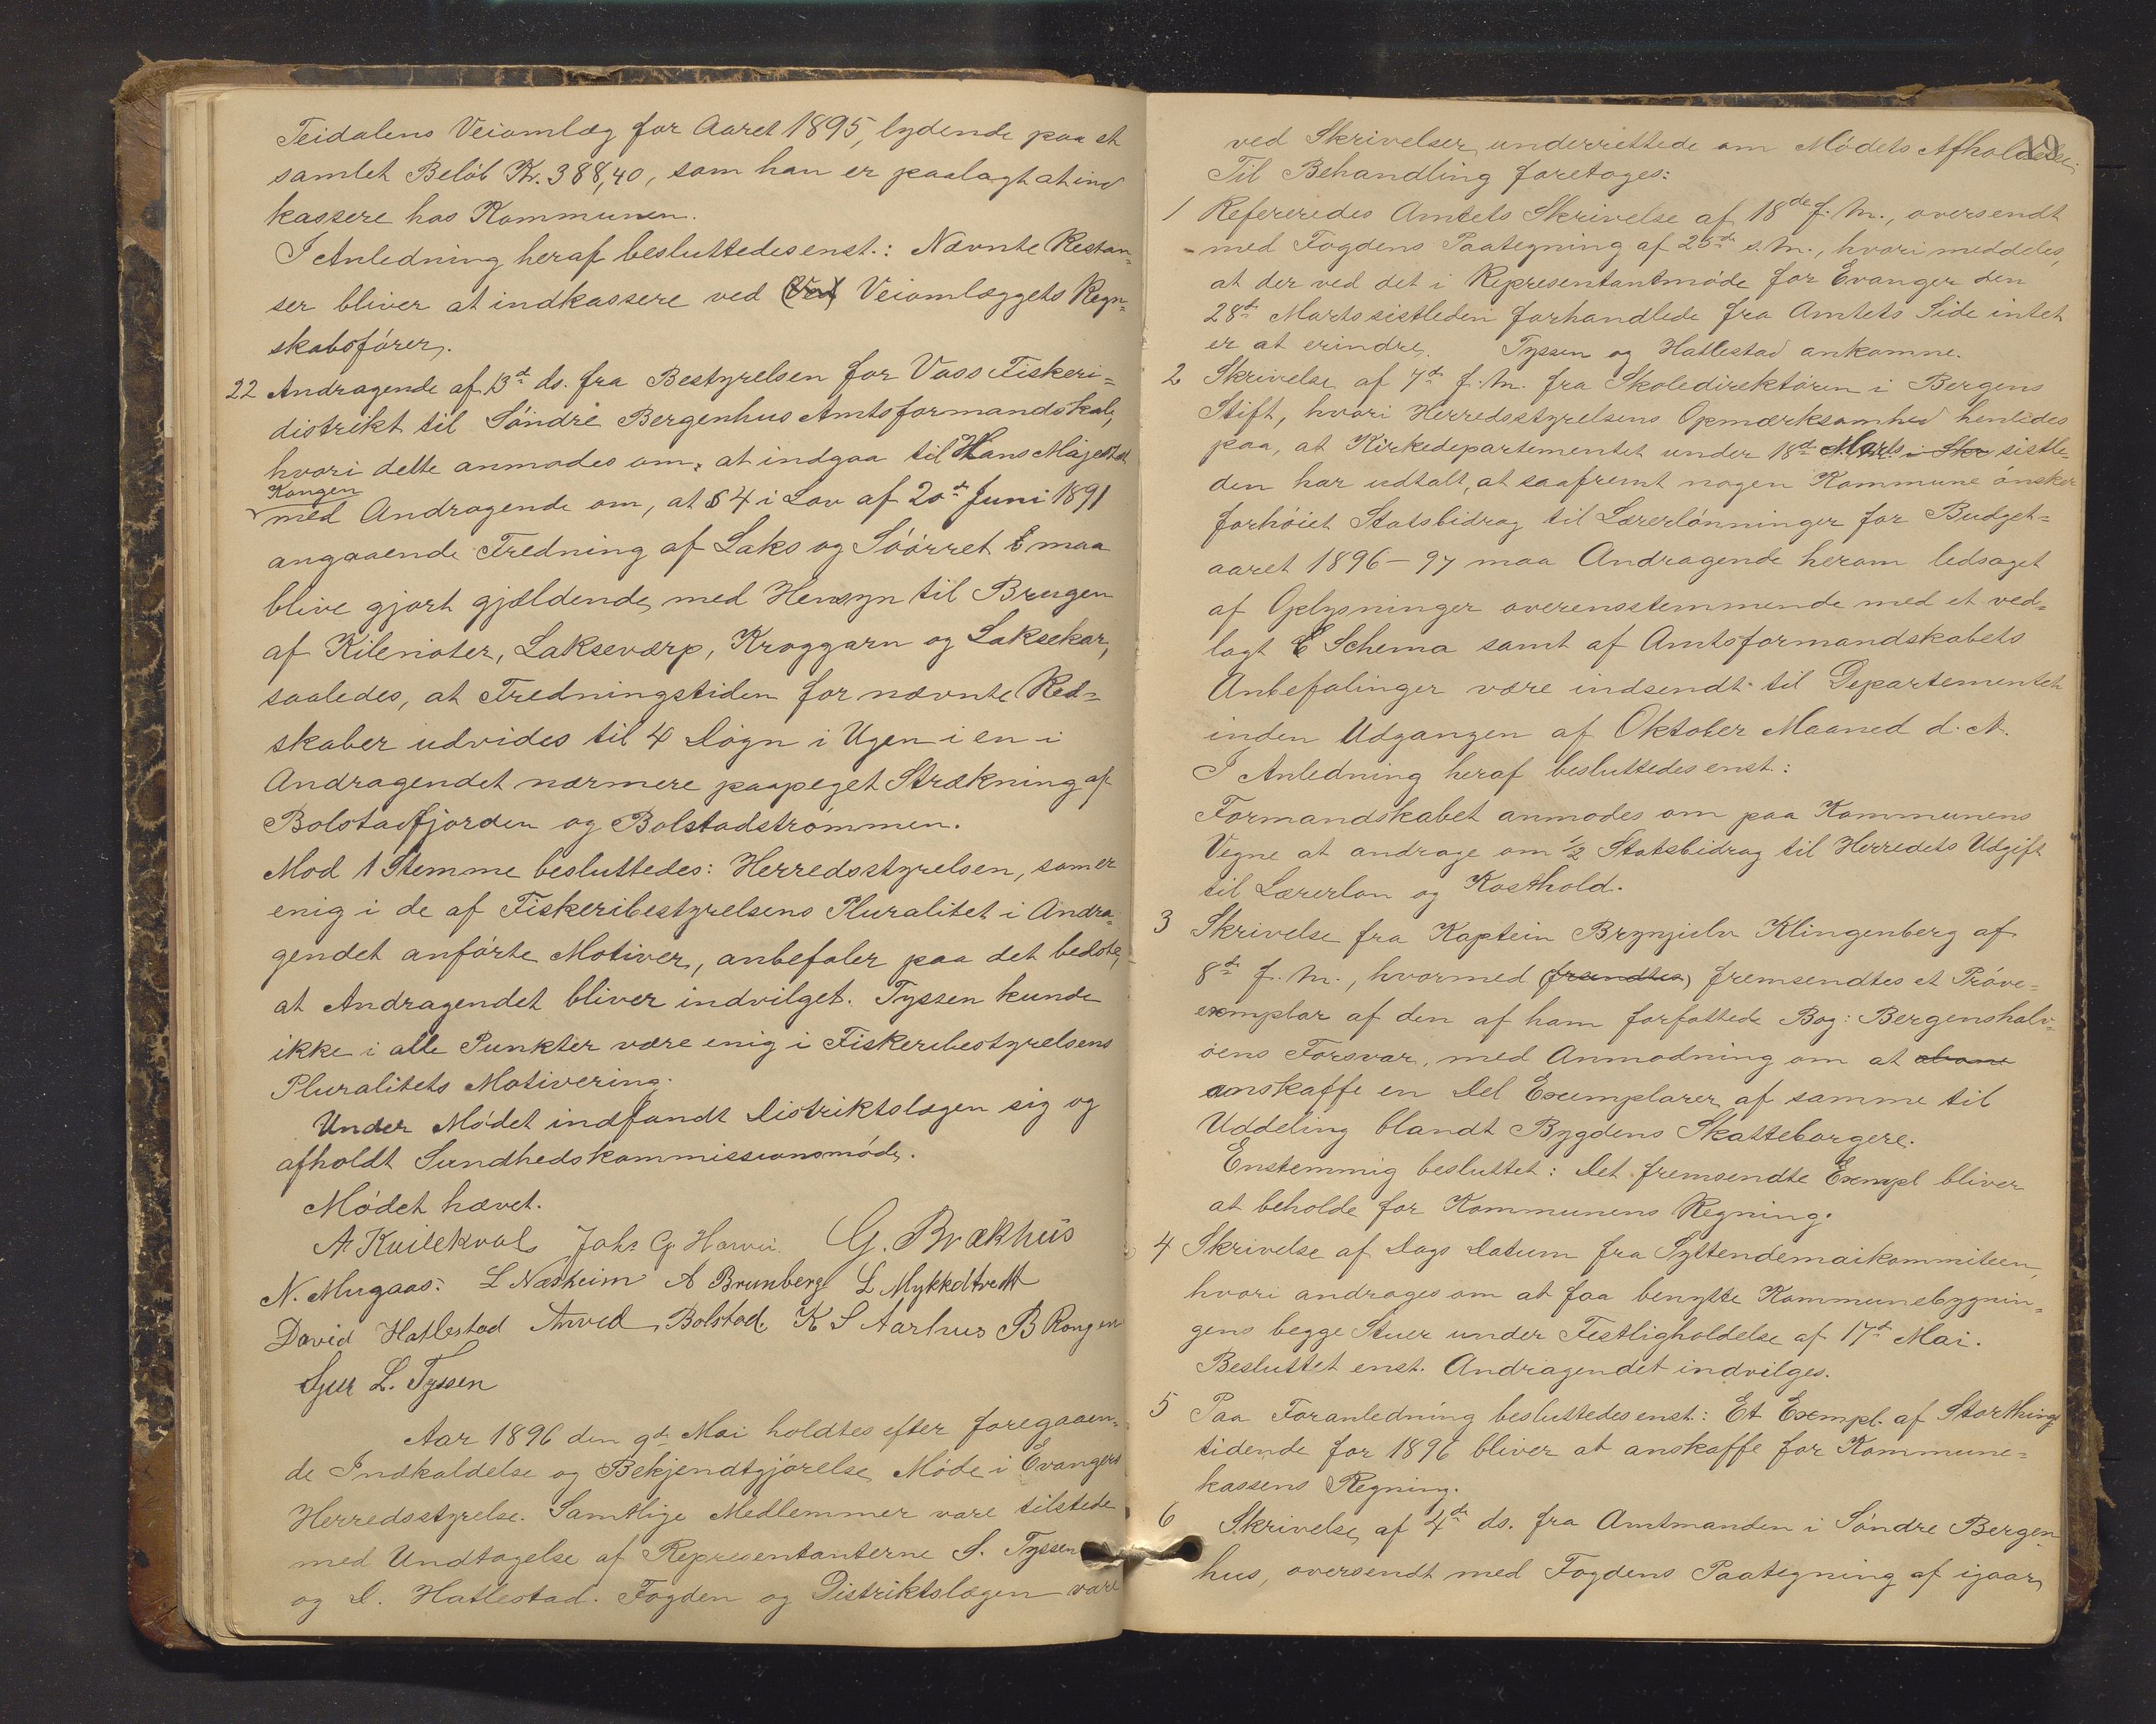 Teidalens Veiomlæg for Aaret 1895, lydende paa et
samlet Beløb Kr. 388,40, som han er paalagt at ind
kassere hos Kommunen.
I Anledning heraf besluttedes enst.: Nævnte Restan=
ser bliver at indkassere ved Veiomlæggets Regn=
skabsfører.
22 Andragende af 13de ds. fra Bestyrelsen for Voss Fiskeri=
distrikt til Søndre Bergenhus Amtsformandskab,
hvori dette anmodes om, at indgaa til Hans Majestæt
Kongen
med Andragende om, at § 4 i Lov af 20de Juni 1891
angaaende Fredning af Laks og Søørret maa
blive gjort gjældende med Hensyn til Brugen
af Kilenoter, Lakseværp, Kroggarn og Laksekar,
saaledes, at Fredningstiden for nævnte Red=
skaber udvides til 4 Døgn i Ugen i en i
Andragendet nærmere paapeget Strækning af
Bolstadfjorden og Bolstadstrømmen.
Mod 1 Stemme besluttedes: Herredsstyrelsen, som er
enig i de af Fiskeribestyrelsens Pluralitet i Andra=
gendet anførte Motiver, anbefaler paa det bedste,
at Andragendet bliver indvilget. Tyssen kunde
ikke i alle Punkter være enig i Fiskeribestyrelsens
Pluralitets Motivering.
Under Mødet indfandt Distriktslægen sig og
afholdt Sundhedskommissionsmøde.
Mødet hævet.
A Kvilekval Johs G. Horvei G. Brækhus
N. Mugaas. L Næsheim A Brunberg L Mykkeltvedt
David Hatlestad Anved Bolstad K S Aarhus B Rongen
Sjur L. Tyssen
Aar 1896 den 9de Mai holdtes efter foregaaen=
de Indkaldelse og Bekjendtgjørelse Møde i Evangers
Herredsstyrelse. Samtlige Medlemmer vare tilstede
med Undtagelse af Representanterne S. Tyssen
og D. Hatlestad. Fogden og Distriktslægen vare
ved Skrivelser underrettede om Mødets Afholdelse.
Til Behandling foretoges:
1 Refereredes Amtets Skrivelse af 18de f. M., oversendt
med Fogdens Paategning af 25de s. M., hvori meddeles,
at der ved det i Representantmøde for Evanger den
28de Marts sistleden forhandlede fra Amtets Side intet
er at erindre. Tyssen og Hatlestad ankomne.
2 Skrivelse af 7de f. M. fra Skoledirektøren i Bergens
Stift, hvori Herredsstyrelsens Opmærksomhed henledes
paa, at Kirkedepartementet under 18de Marts i Skr sistle=
den har udtalt, at saafremt nogen Kommune ønsker
forhøiet Statsbidrag til Lærerlønninger for Budget=
aaret 1896–97 maa Andragende herom ledsaget
af Oplysninger overensstemmende med et ved=
lagt Schema samt af Amtsformandskabets
Anbefalinger være indsendt til Departementet
inden Udgangen af Oktober Maaned d. A.
I Anledning heraf besluttedes enst.:
Formandskabet anmodes om paa Kommunens
Vegne at andrage om ½ Statsbidrag til Herredets Udgift
til Lærerløn og Kosthold.
3 Skrivelse fra Kaptein Brynjulv Klingenberg af
8de f. M., hvormed fremsendtes et Prøve=
exemplar af den af ham forfattede Bog: Bergenshalv=
øens Forsvar, med Anmodning om at
anskaffe en Del Exemplarer af samme til
Uddeling blandt Bygdens Skatteborgere.
Enstemmig besluttet: Det fremsendte Exempl bliver
at beholde for Kommunens Regning.
4 Skrivelse af Dags Datum fra Syttendemaikommiteen,
hvori andrages om at faa benytte Kommunebygnin=
gens begge Stuer under Festligholdelse af 17de Mai.
Besluttet enst. Andragendet indvilges.
5 Paa Foranledning besluttedes enst.: Et Exempl. af Storthings
tidende for 1896 bliver at anskaffe for Kommune=
kassens Regning.
6 Skrivelse af 4de ds. fra Amtmanden i Søndre Bergen
hus, oversendt med Fogdens Paategning af igaar,